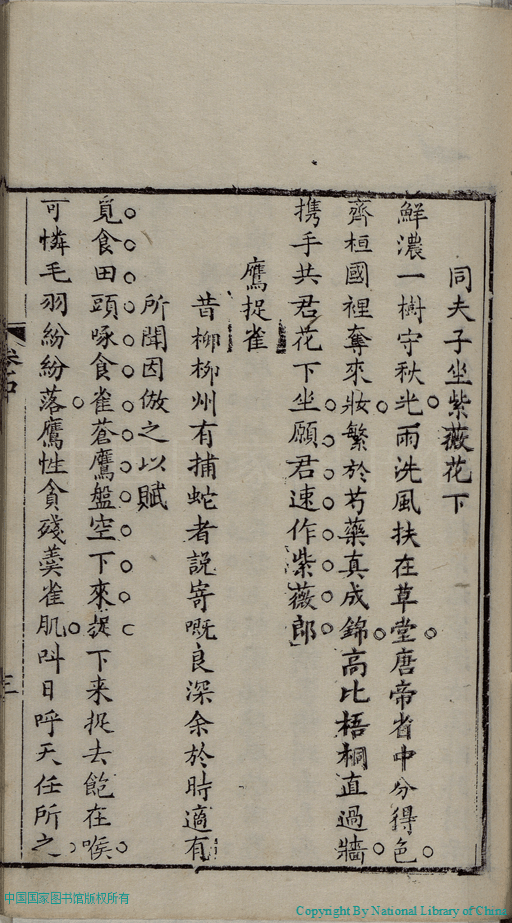 同夫子坐紫薇花下
鮮濃一樹守秋光雨洗風扶在草堂唐帝省中分得色
齊桓國裡奪來妝繁於芍藥真成錦高比梧桐直過牆
携手共君花下坐願君速作紫薇郎
鷹捉雀
昔柳柳州有捕蛇者說寄嘅良深余於時適有
所聞因倣之以賦
覓食田頭啄食雀蒼鷹盤空下來捉下来捉去飽在喉
可憐毛羽紛紛落鷹性貪殘美雀肌叫日呼天任所之
三
中国国家图书馆版权所有
Copyright By National Library of China